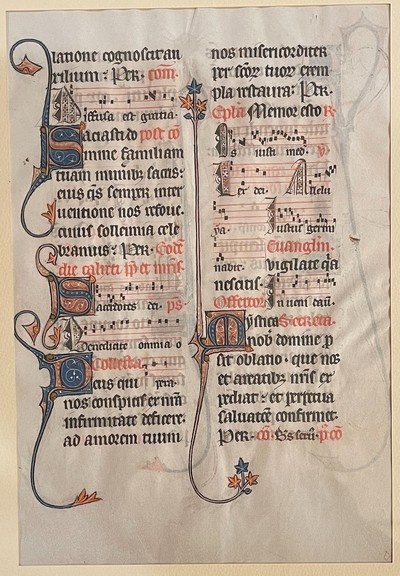 latione cognoscitan
xilium : Per. com.
iffusa est gratia.
Saciasti dō post cō
mine familiam
tuam munibȝ sacris:
eius q̄s semper inter
uentione nos refoue.
cuius sollemnia cele
bramus : Per.
die
Sacerdotes dei. ps.
Benedicite omnia o
Collecta
Deus qui
nos conspicis ex nr̄a
infirmitate deficere.
ad amorem tuum
nos misericorditer
per scōꝝ tuoꝝ exem
pla restaura : Per.
Epl̄a Memor esto R.
Os iusti med. v.
Lex dei. Allelu
ya. Iustus germi
nabit. Euangliū.
vigilate q̄a
nescitis.
Offertor Inueni dauid.
Mystica Secreta.
nob domine p
sit oblatio. que nos
et a reatibȝ nr̄is ex
pediat : et perpetua
saluatōe confirmet.
Per. cō. p̄ cō